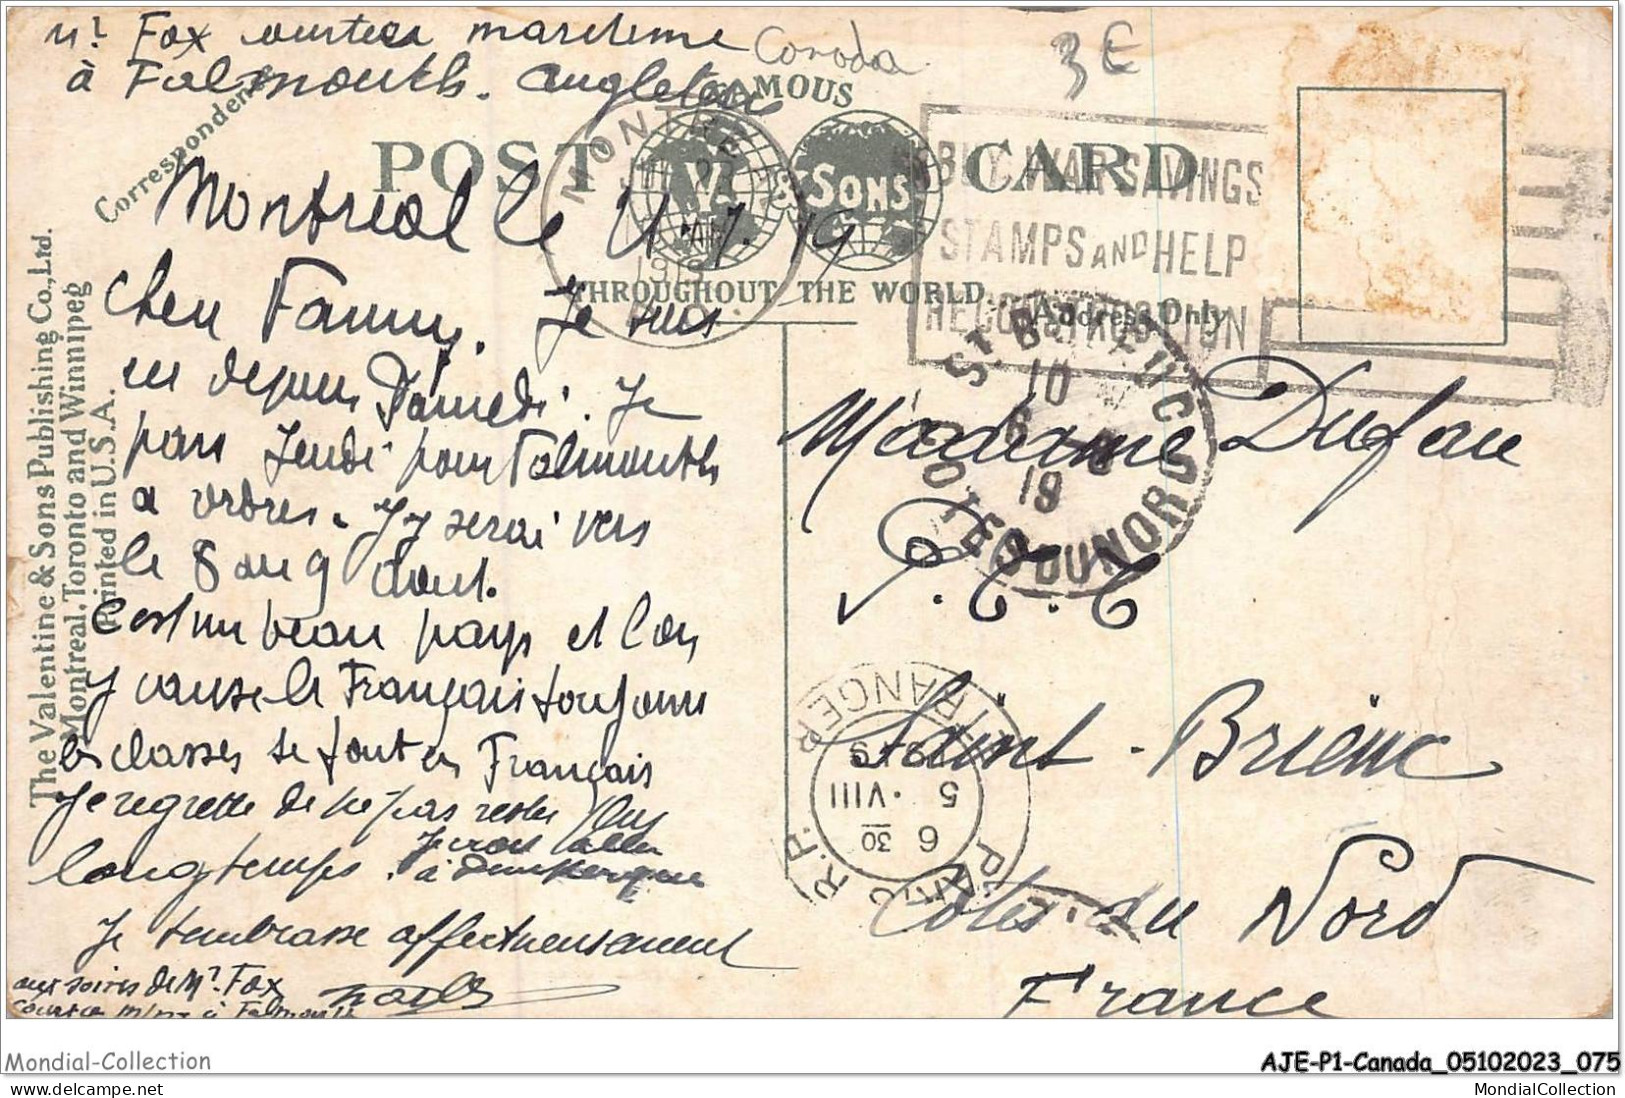 Mr Fox courtier maritime
à Falmouth. Angleterre
Canada
3€
Correspondence
FAMOUS
POST CARD
V. & SONS
THROUGHOUT THE WORLD
MONTRE
1919
BUY WAR SAVINGS
STAMPS AND HELP
RECONSTRUCTION
Address Only
The Valentine & Sons Publishing Co., Ltd.
Montreal, Toronto and Winnipeg
Printed in U.S.A.
Montréal le 21 7. 19
Chère Fanny. Je suis
ici depuis Samedi. Je
pars Jeudi pour Falmouth
a ordres. J'y serai vers
le 8 ou 9 Aout.
C'est un beau pays et l'on
y cause le Français toujours
les classes se font en Français
Je regrette de ne pas rester plus
longtemps. Je vais aller
à Dunkerque
Je t'embrasse affectueusement
aux soins de Mr. Fox
à Falmouth
ST BRIEUC
10
6 - 8
19
COTES DU NORD
Madame Dufau
P.T.T
Saint-Brieuc
Côtes-du Nord
France
PARIS R.P.
ETRANGER
6 30
5 . VIII
Mondial-Collection
AJE-P1-Canada_05102023_075
MondialCollection